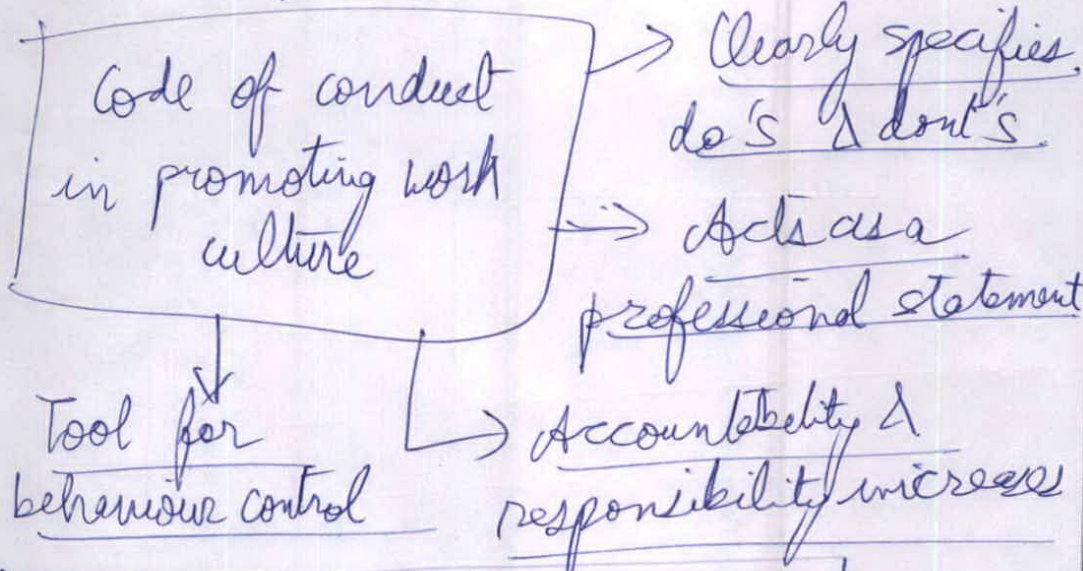 Code of conduct
in promoting work
culture
Clearly specifies
do's & dont's.
Acts as a
professional statement
Tool for
behaviour control
Accountability &
responsibility increases